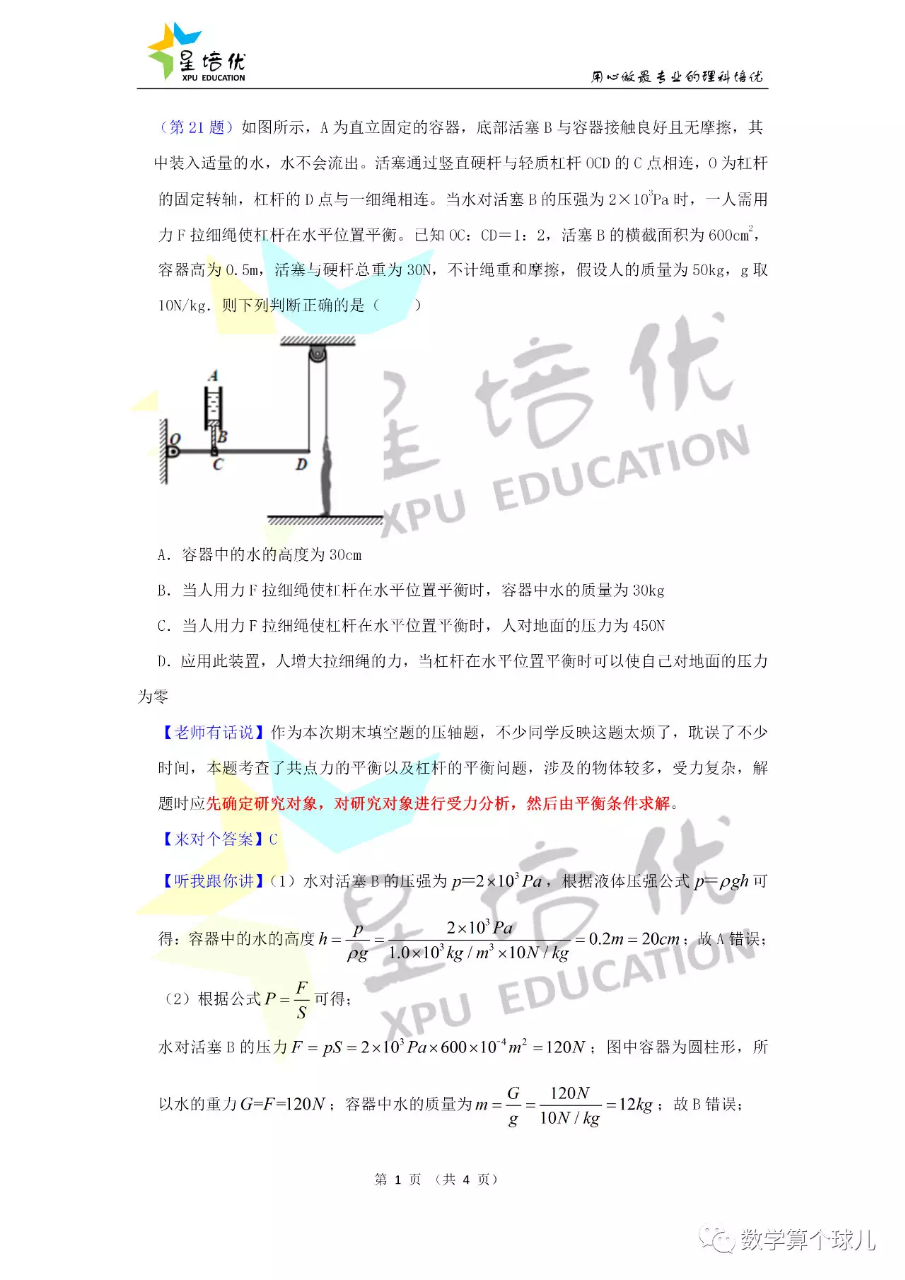 星培优
XPU EDUCATION
用心做最专业的理科培优
（第21题）如图所示，A为直立固定的容器，底部活塞B与容器接触良好且无摩擦，其
中装入适量的水，水不会流出。活塞通过竖直硬杆与轻质杠杆OCD的C点相连，O为杠杆
的固定转轴，杠杆的D点与一细绳相连。当水对活塞B的压强为2×10³Pa时，一人需用
力F拉细绳使杠杆在水平位置平衡。已知OC：CD＝1：2，活塞B的横截面积为600cm²，
容器高为0.5m，活塞与硬杆总重为30N，不计绳重和摩擦，假设人的质量为50kg，g取
10N/kg．则下列判断正确的是（　　）
A
O
B
C
D
星培优
XPU EDUCATION
A．容器中的水的高度为30cm
B．当人用力F拉细绳使杠杆在水平位置平衡时，容器中水的质量为30kg
C．当人用力F拉绳使杠杆在水平位置平衡时，人对地面的压力为450N
D．应用此装置，人增大拉细绳的力，当杠杆在水平位置平衡时可以使自己对地面的压力
为零
【老师有话说】作为本次期末填空题的压轴题，不少同学反映这题太烦了，耽误了不少
时间，本题考查了共点力的平衡以及杠杆的平衡问题，涉及的物体较多，受力复杂，解
题时应先确定研究对象，对研究对象进行受力分析，然后由平衡条件求解。
【来对个答案】C
【听我跟你讲】（1）水对活塞B的压强为p=2×10³Pa，根据液体压强公式p=ρgh可
得：容器中的水的高度h = p/ρg = 2×10³Pa/1.0×10³kg/m³×10N/kg = 0.2m = 20cm；故A错误；
（2）根据公式P = F/S可得；
水对活塞B的压力F = pS = 2×10³Pa×600×10⁻⁴m² = 120N；图中容器为圆柱形，所
以水的重力G=F=120N；容器中水的质量为m = G/g = 120N/10N/kg = 12kg；故B错误；
星培优
XPU EDUCATION
第 1 页 （共 4 页）
数学算个球儿